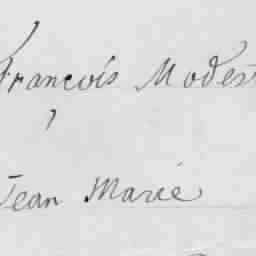 François Modest
Jean Marie